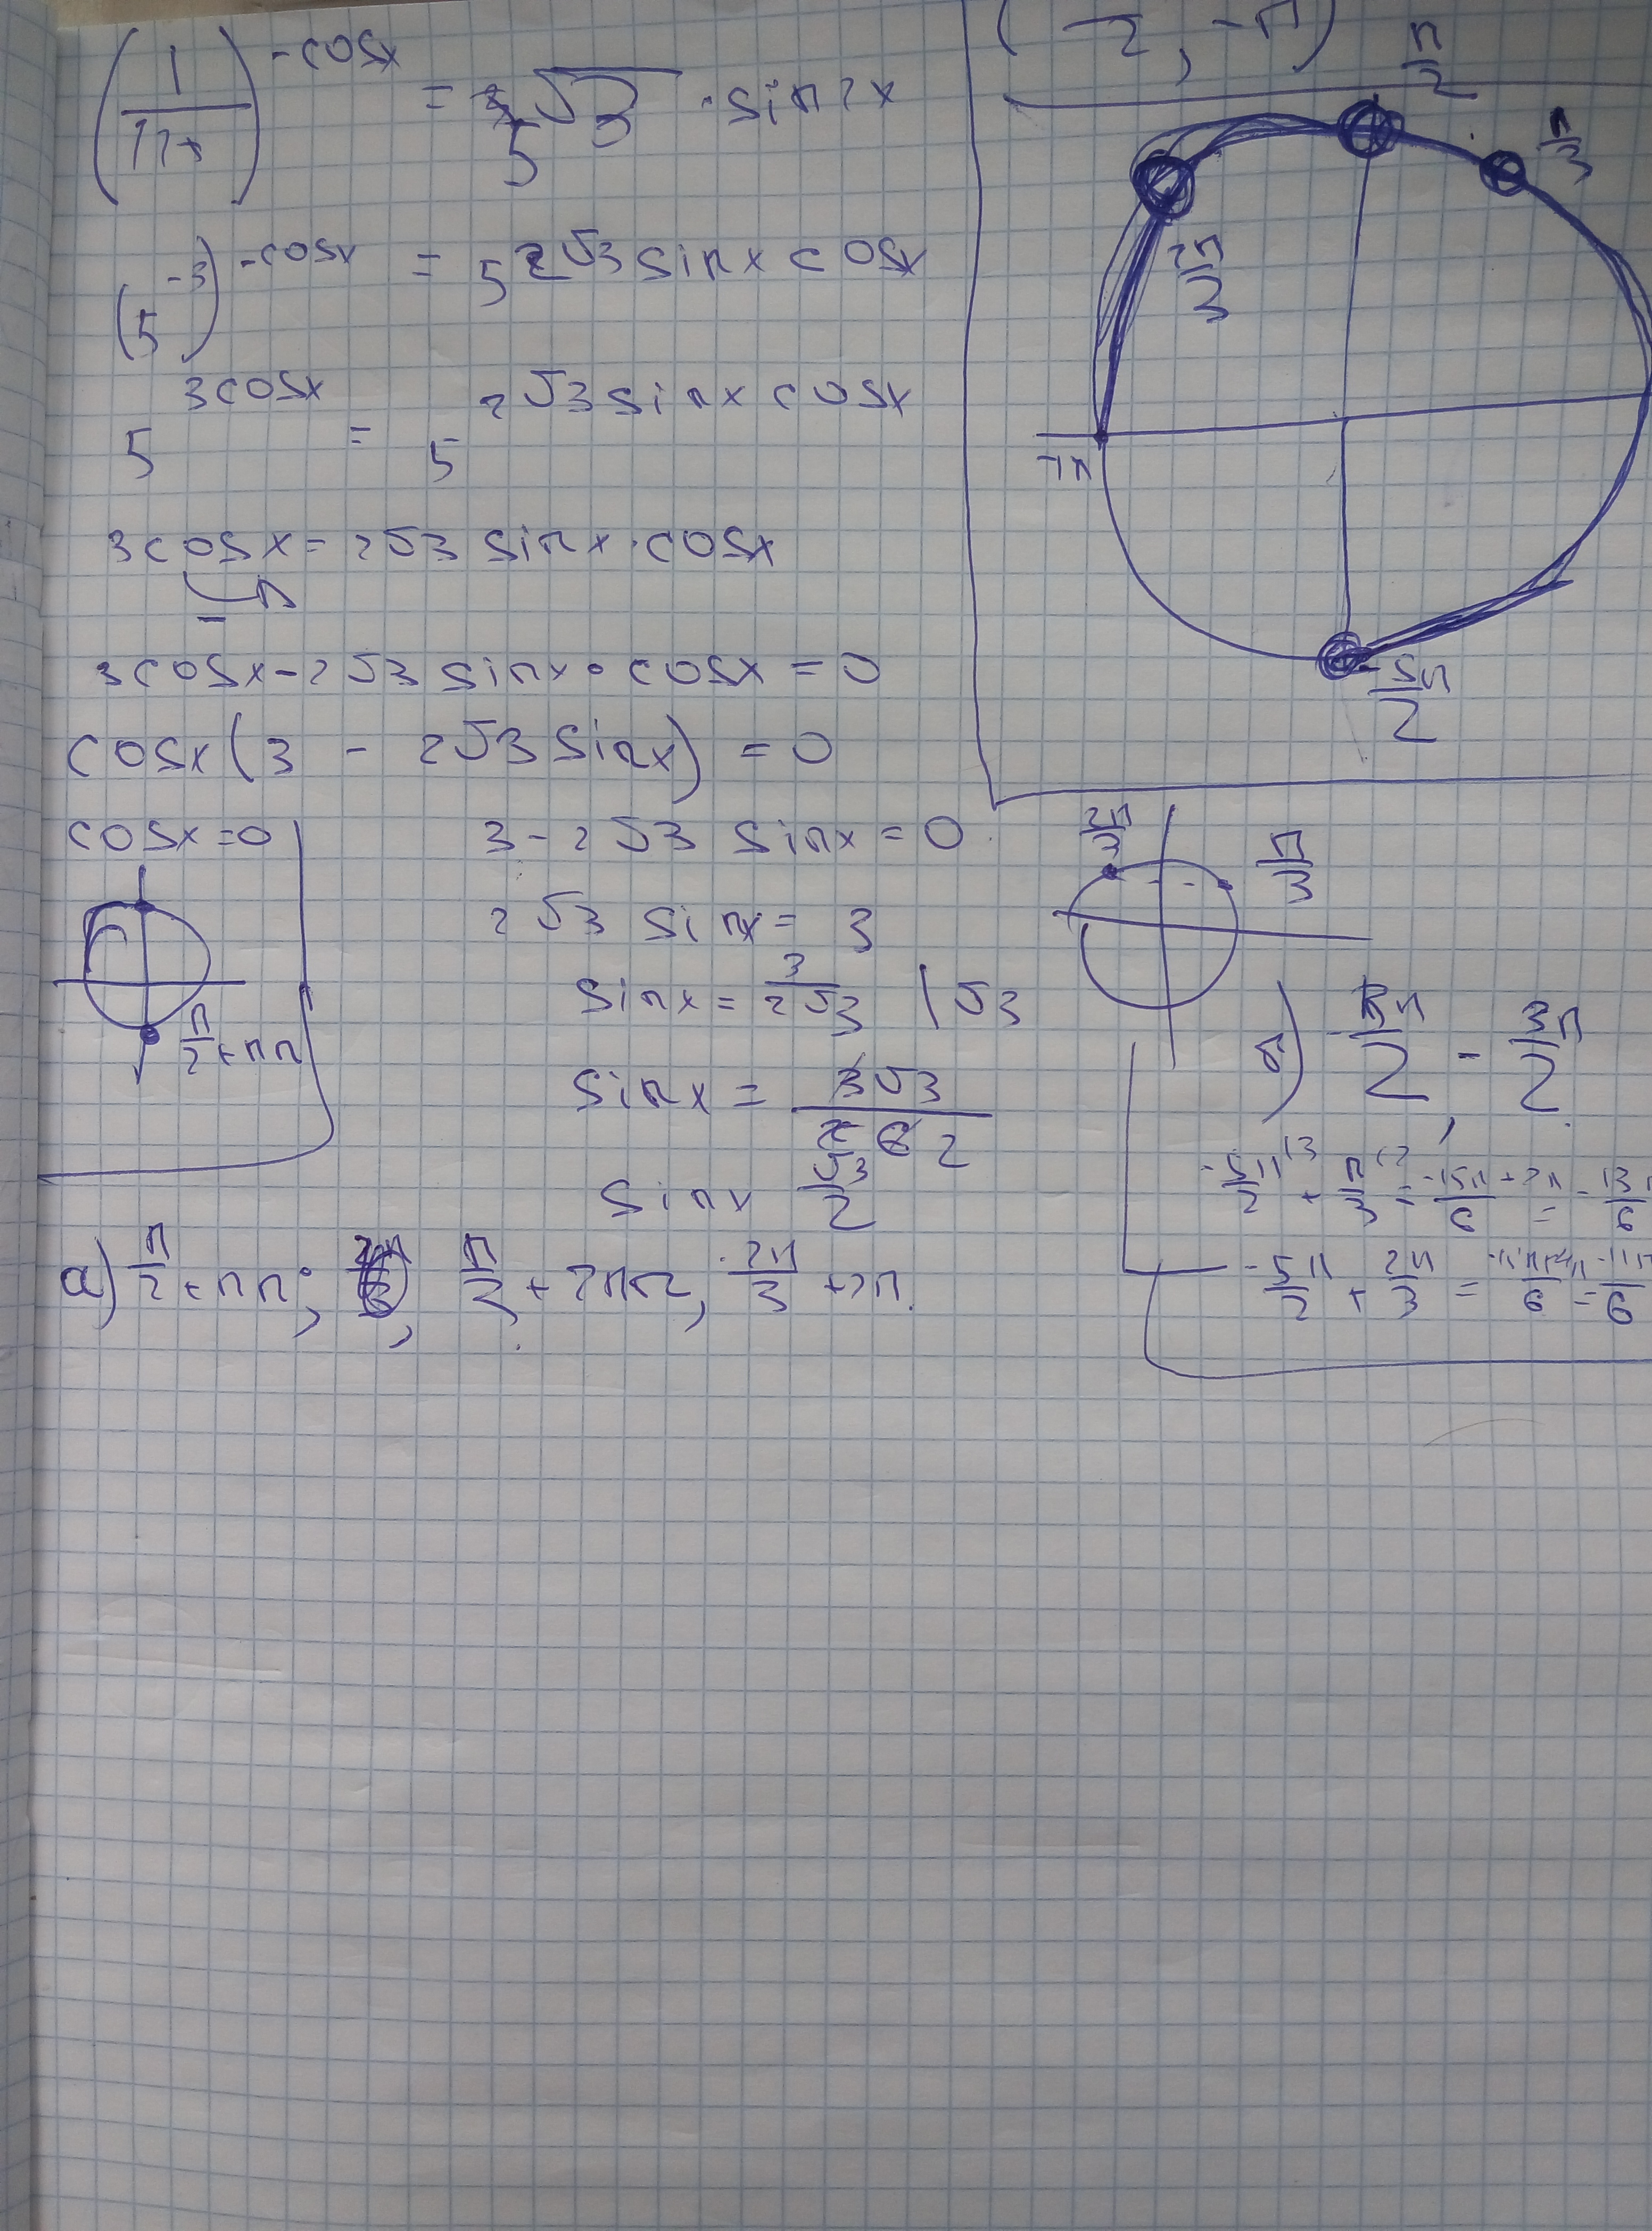 (1/125)^-cosx = 5^√3 · sin2x
(5^-3)^-cosx = 5^2√3 sinx cosx
5^3cosx = 5^2√3 sinx cosx
3cosx = 2√3 sinx · cosx
3cosx - 2√3 sinx · cosx = 0
cosx (3 - 2√3 sinx) = 0
cosx = 0
π/2 + πn
3 - 2√3 sinx = 0
2√3 sinx = 3
sinx = 3/2√3 | √3
sinx = 3√3/6 2
sinx √3/2
а) π/2 + πn; π/2 + 2πn, 2π/3 + 2π.
, -π)
π/2
π/3
2π/3
-π
-5π/2
2π/3
π/3
б) - 3π/2
-5π/2 + π/3 = -15π + 2π/6 = -13π/6
-5π/2 + 2π/3 = = -11π/6